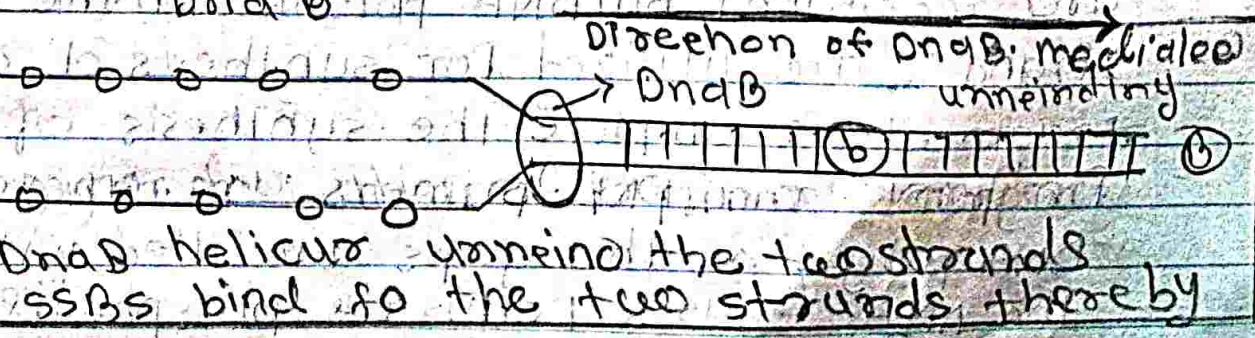 Direction of DnaB; mediatee
DnaB unneinding
b b
DnaB helicur unneind the two strands
SSBs bind to the two strands, thereby